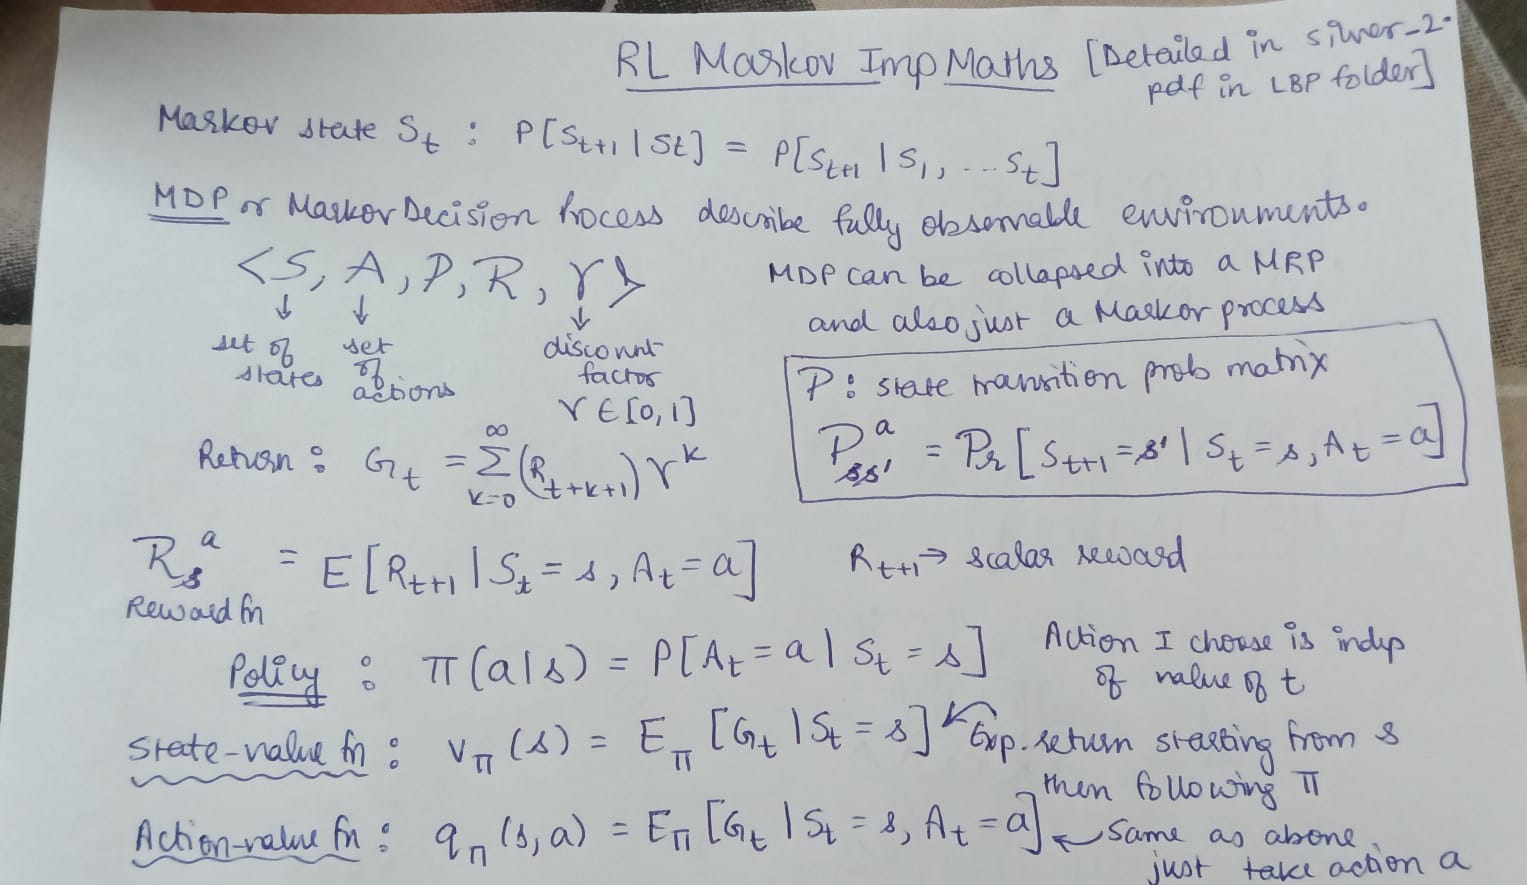 RL Markov Imp Maths [Detailed in silver-2.
pdf in LBP folder]
Markov state S_t : P[S_{t+1} | S_t] = P[S_{t+1} | S_1, ... S_t]
MDP or Markov Decision Process describe fully observable environments.
<S, A, P, R, γ>
↓ ↓ ↓
set of states
set of actions
discount factor
γ ∈ [0,1]
MDP can be collapsed into a MRP
and also just a Markov process
P : state transition prob matrix
P_{ss'}^a = Pr [S_{t+1} = s' | S_t = s, A_t = a]
Return : G_t = Σ_{k=0}^{∞} (R_{t+k+1}) γ^k
R_s^a = E [R_{t+1} | S_t = s, A_t = a] R_{t+1} → scalar reward
Reward fn
Policy : π(a|s) = P[A_t = a | S_t = s]
Action I choose is indep
of value of t
State-value fn : v_π(s) = E_π [G_t | S_t = s] ← Exp. return starting from s
then following π
Action-value fn : q_π(s,a) = E_π [G_t | S_t = s, A_t = a] ← Same as above
just take action a